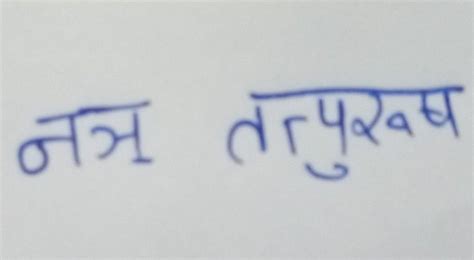 नञ् तत्पुरुष